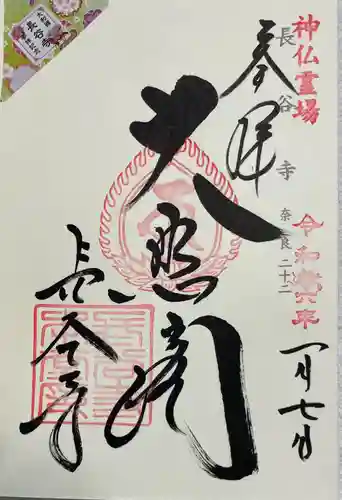 神仏霊場
長谷寺 奈良二十二
奉拝
令和 年
一月七日
大悲閣
長谷寺
長谷寺